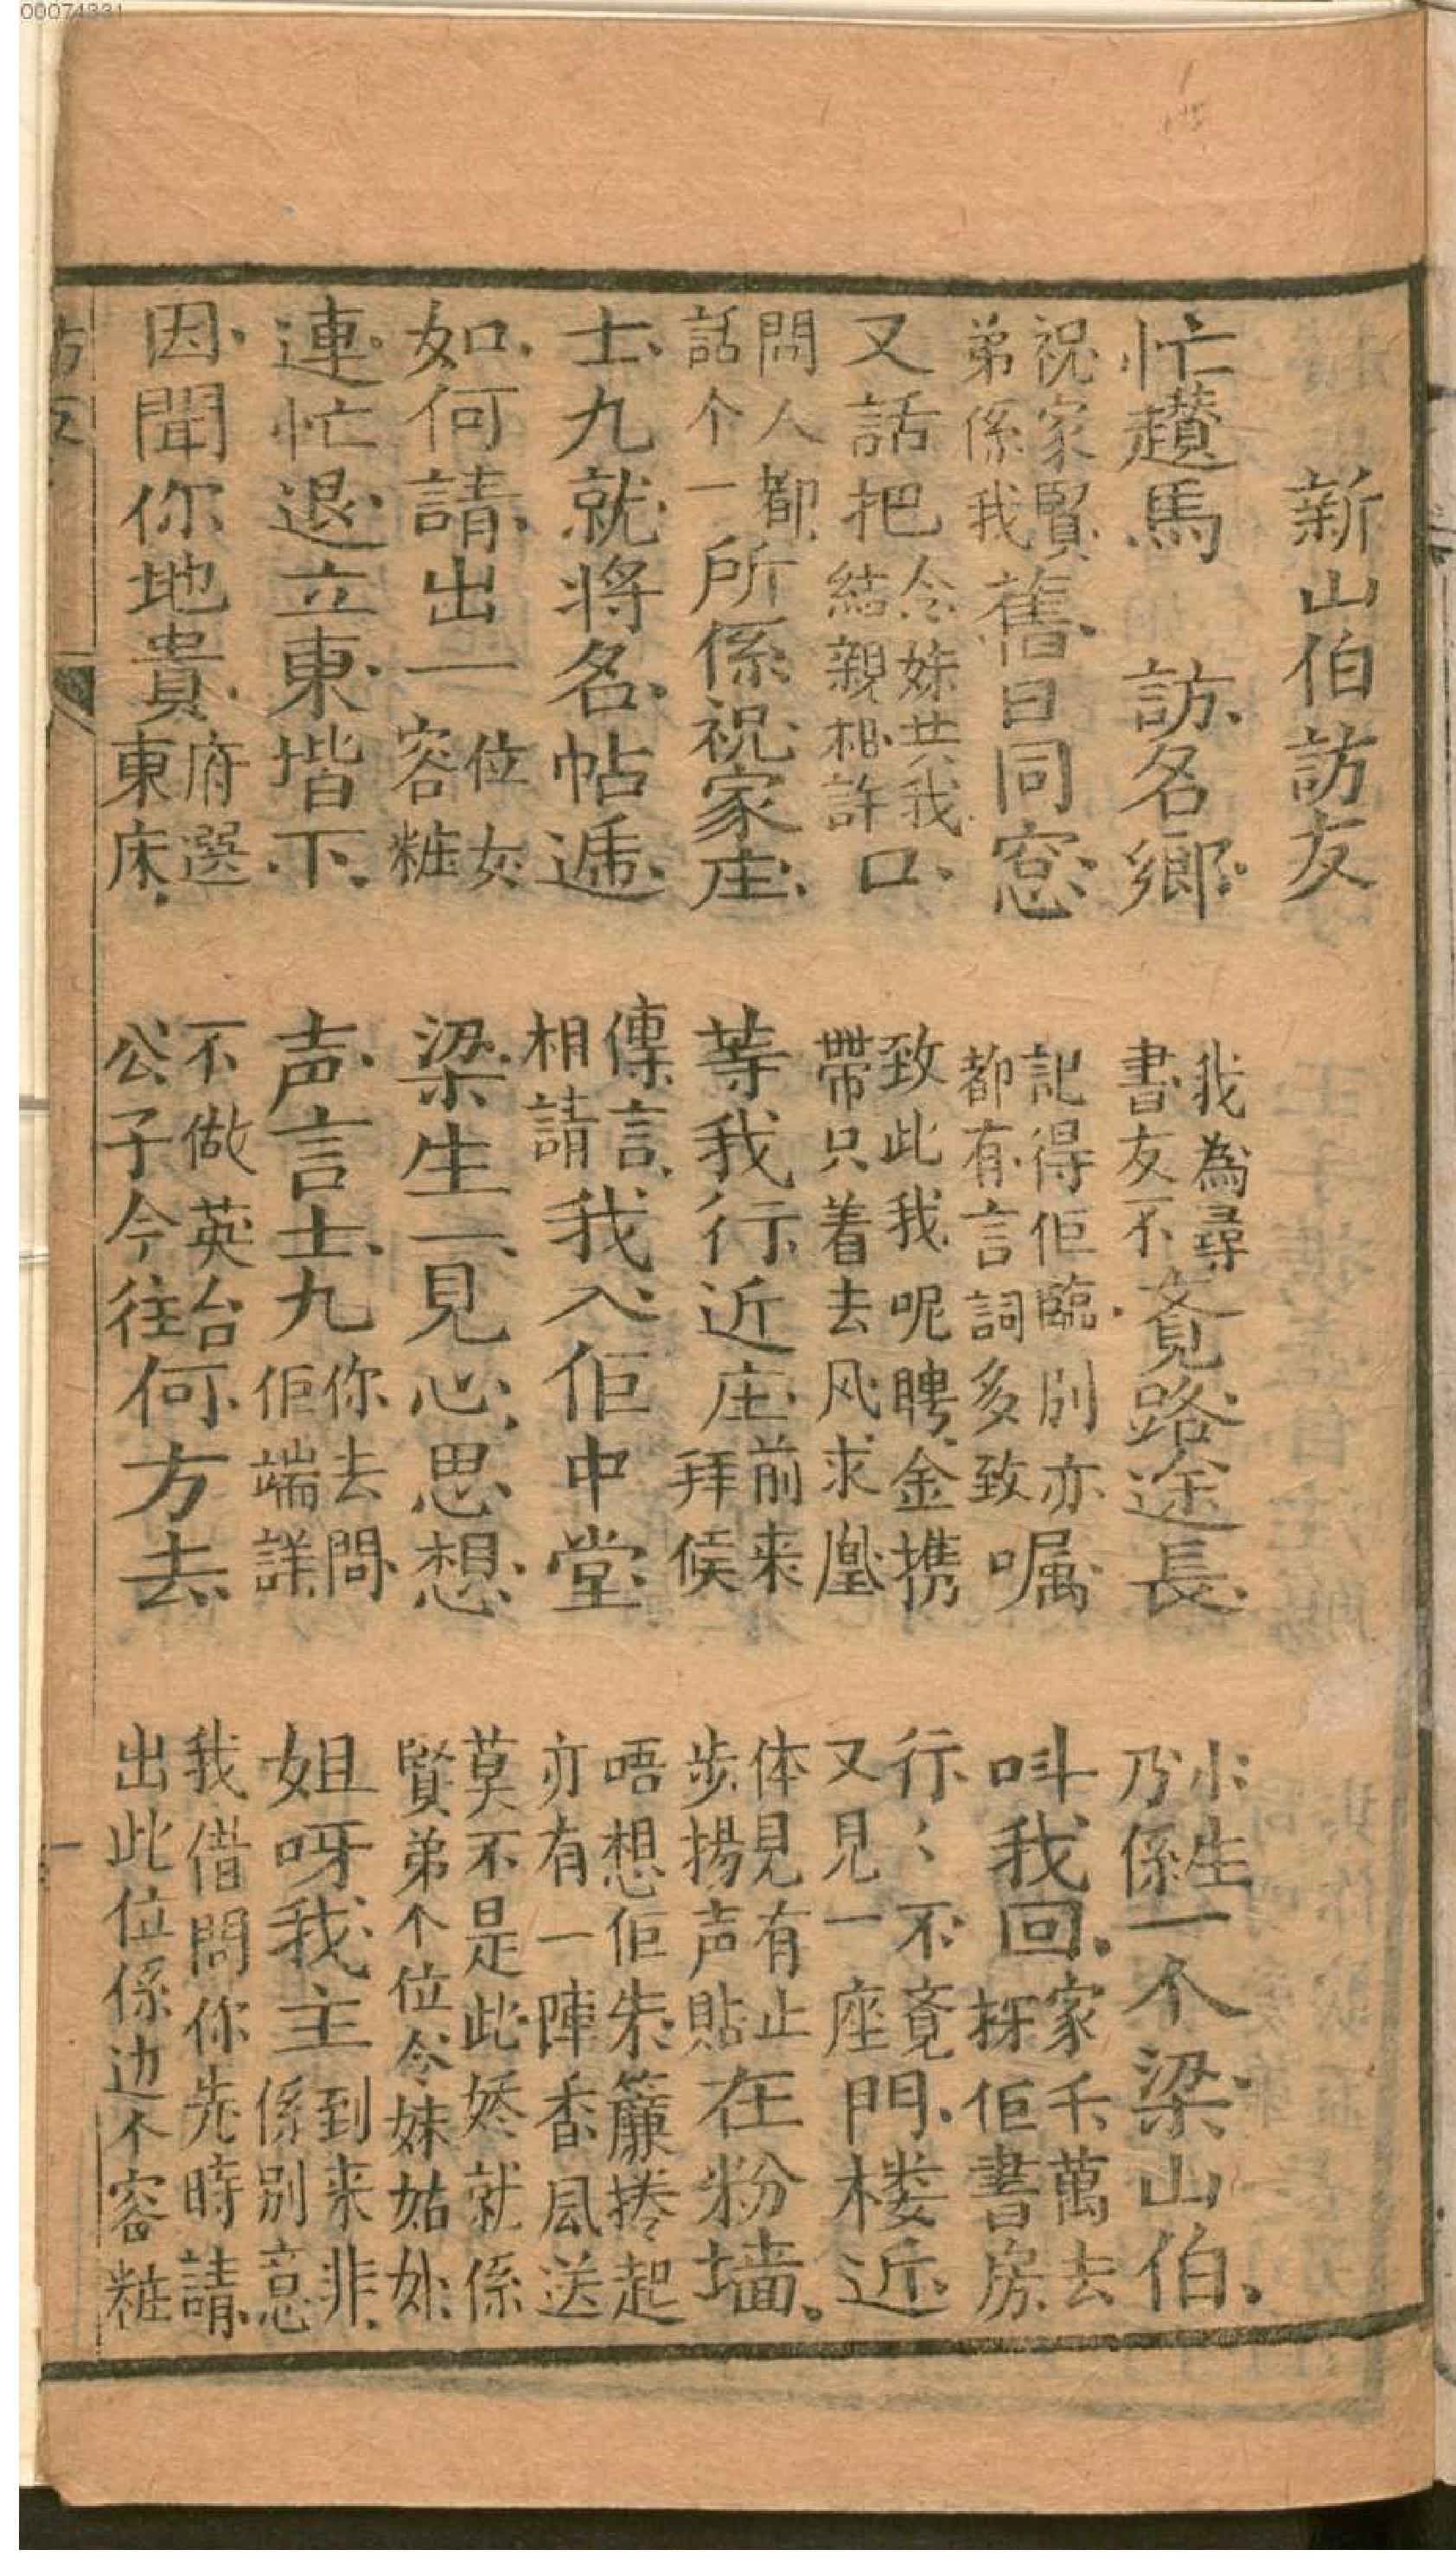 00074331
新山伯訪友
忙趲馬 訪名鄉 我為尋書友不覺路途長 小生乃係一个梁山伯
祝家賢弟係我舊日同窓 記得佢臨別亦都有言詞多致嘱 叫我回家千萬去探佢書房
又話把令妹共我結親相許口 致此我呢聘金携帶只着去风求凰 行〻不竟又見一座門楼近
問人都話个一所係祝家庄 等我行近庄前来拜候 体見有止步揚声貼在粉墙
士九就將名帖逓 傳言相請我入佢中堂 唔想佢朱簾捲起亦有一陣香風送
如何請出一位女容粧 梁生一見心思想 莫不是此娇就係賢弟个位令妹姑
連忙退立東堦下 声言士九你去問佢端詳 姐呀我主到来非係別意
因聞你地貴府選東床 不做英台公子今往何方去 我借問你先時請出此位係边个容粧
訪友